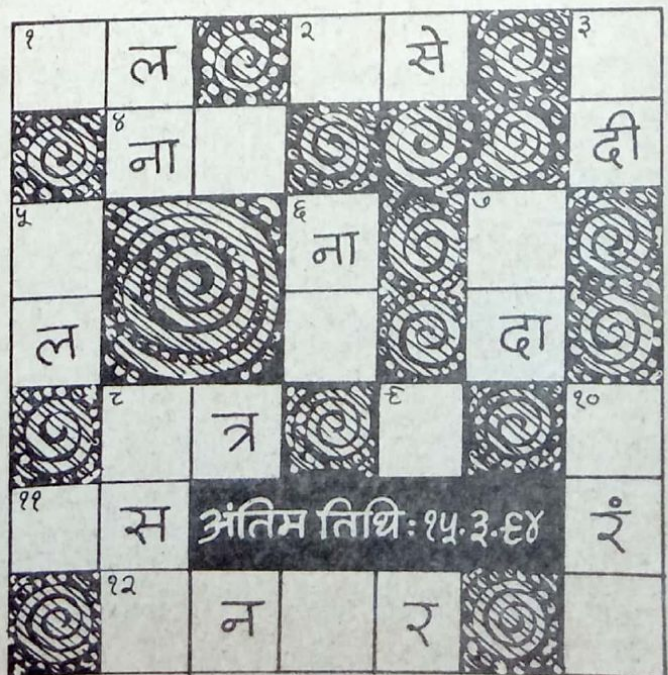 १ ल २ से ३
४ ना दी
५ ६ ना ७
ल दा
८ त्र ९ १०
११ स अंतिम तिथि: १५.३.९४ रं
१२ न र